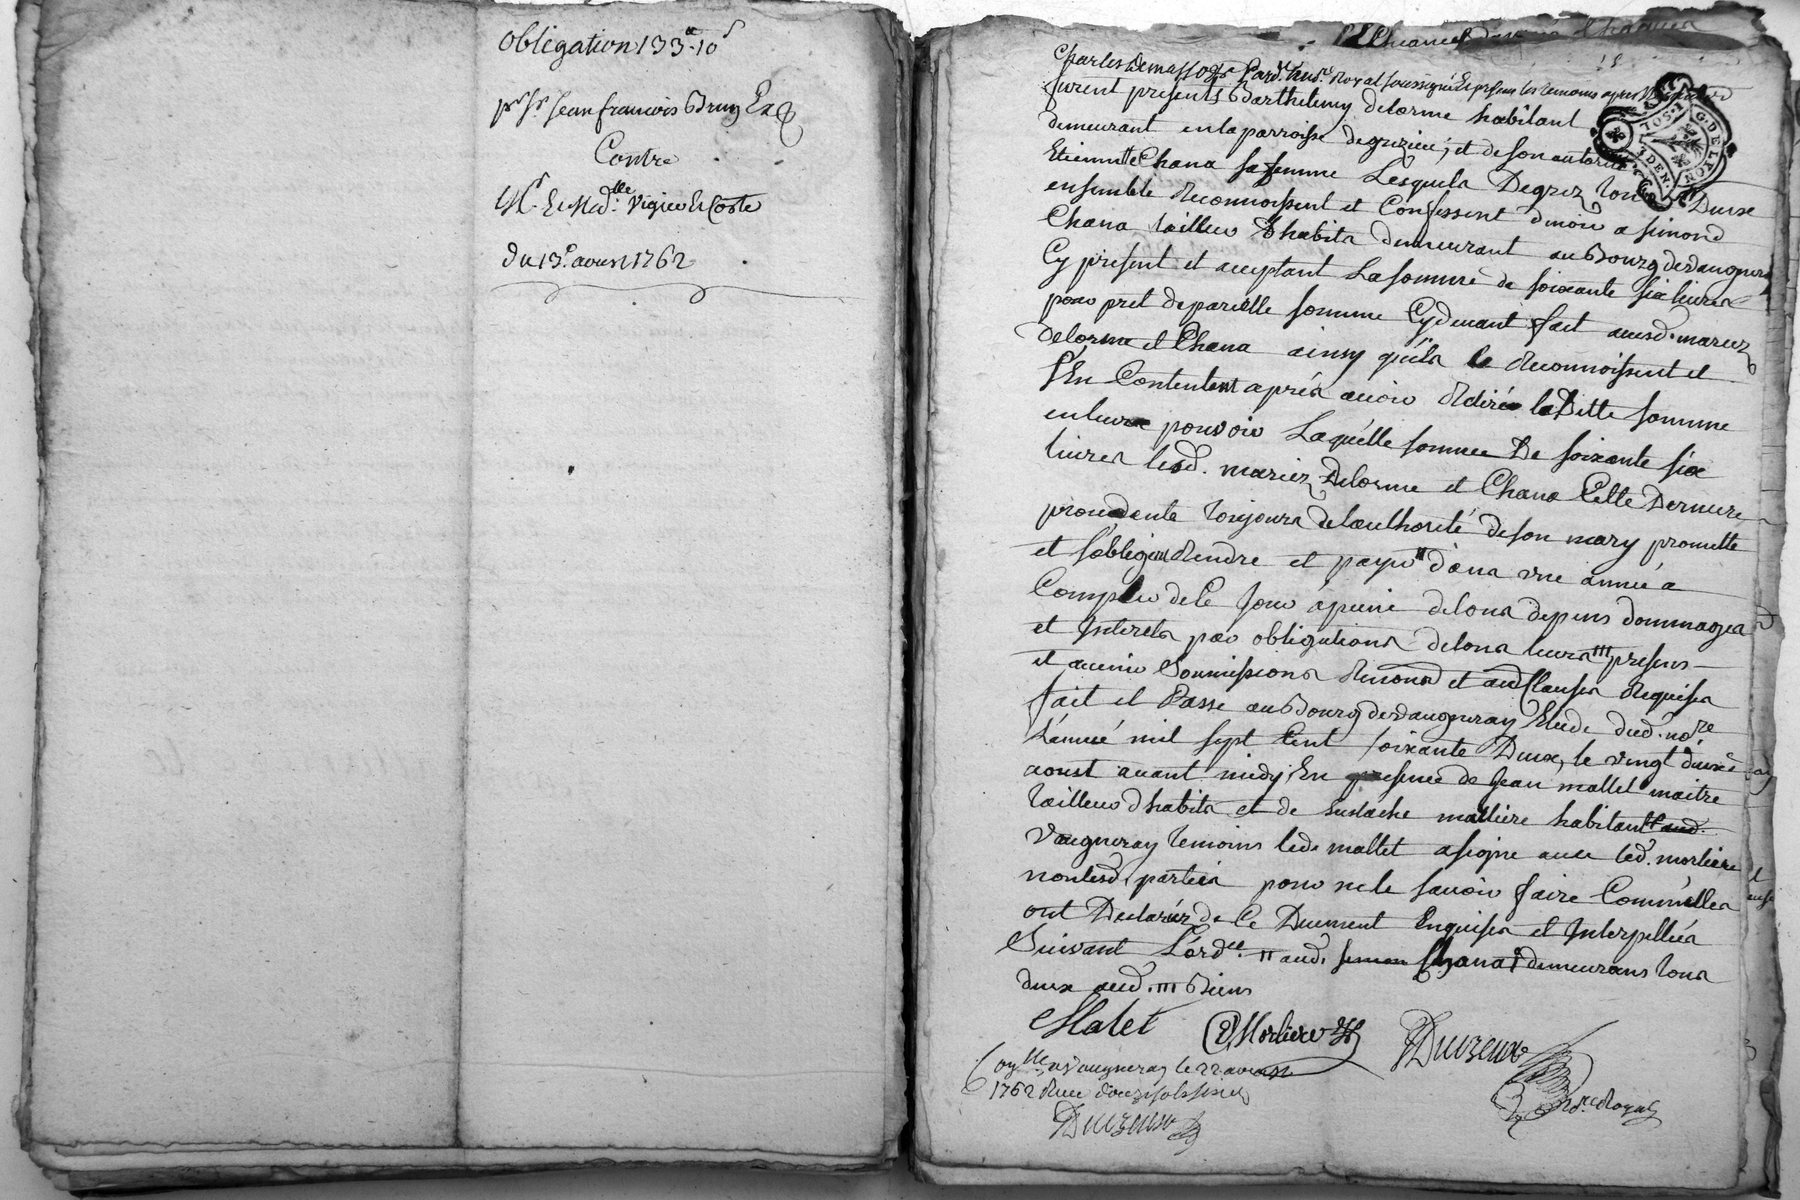 obligation 133ll 10s
pr Sr jean francois Brun Ex
Contre
Mr. Et Mad.lle Vigier et Coste
du 13e. aoust 1762
furent presents Barthelemy delorme habitant
demeurant en la parroisse de grezieu; et de son autorité
Etiennette Chana sa femme Lesquels Degrez tous Deux
ensemble Reconnoissent et Confessent devoir a simond
Chana tailleur d'habits demeurant au Bourg de Vaugneray
Cy present et acceptant La somme de soixante six livres
pour pret de pareille somme Cy devant fait ausd. mariez
delorme et Chana ainsy qu'ils le Reconnoissent et
s'En Contentent après avoir Retiré la Ditte somme
en leurs pouvoir Laquelle somme De soixante six
livres lesd. mariez Delorme et Chana Cette Derniere
procedente toujours de l'authorité de son mary promette
et s'obligent Rendre et payer d'ans une année a
Compter de Ce jour a peine de tous depens dommages
et Interets par obligations de tous leurs III presens
et avenir Soumissions Renond et aud Clauses Requises
fait et Passé au Bourg de Vaugneray Etude dud. nore
L'année mil sept Cent soixante Deux, le vingt deuxe
aoust avant midy En presence de Jean mallet maitre
tailleur d'habits et de Eustache morliere habitant aud.
Vaugneray temoins led. mallet a signe avec led. morliere
non lesd. parties pour ne le savoir faire Comm'elles
ont Declarez de Ce Duement Enquises et Interpellées
Suivant L'ordce. II aud. simon Chana; demeurans tous
deux aud. III Biens
Malet E Morliere Duizeux
nore Royal
Conlle a Vaugneray le 22 aoust
1762 Reçu douze sols six
Duizeux
G. DE LYON